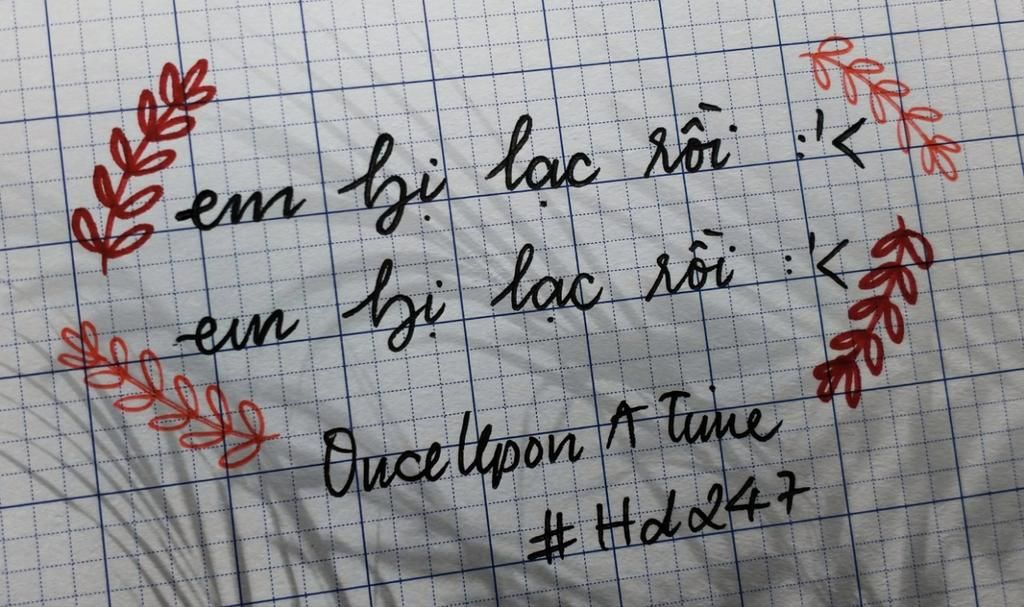 em bị lạc rồi :'<
em bị lạc rồi :'<
Once Upon A Time
#Hd247